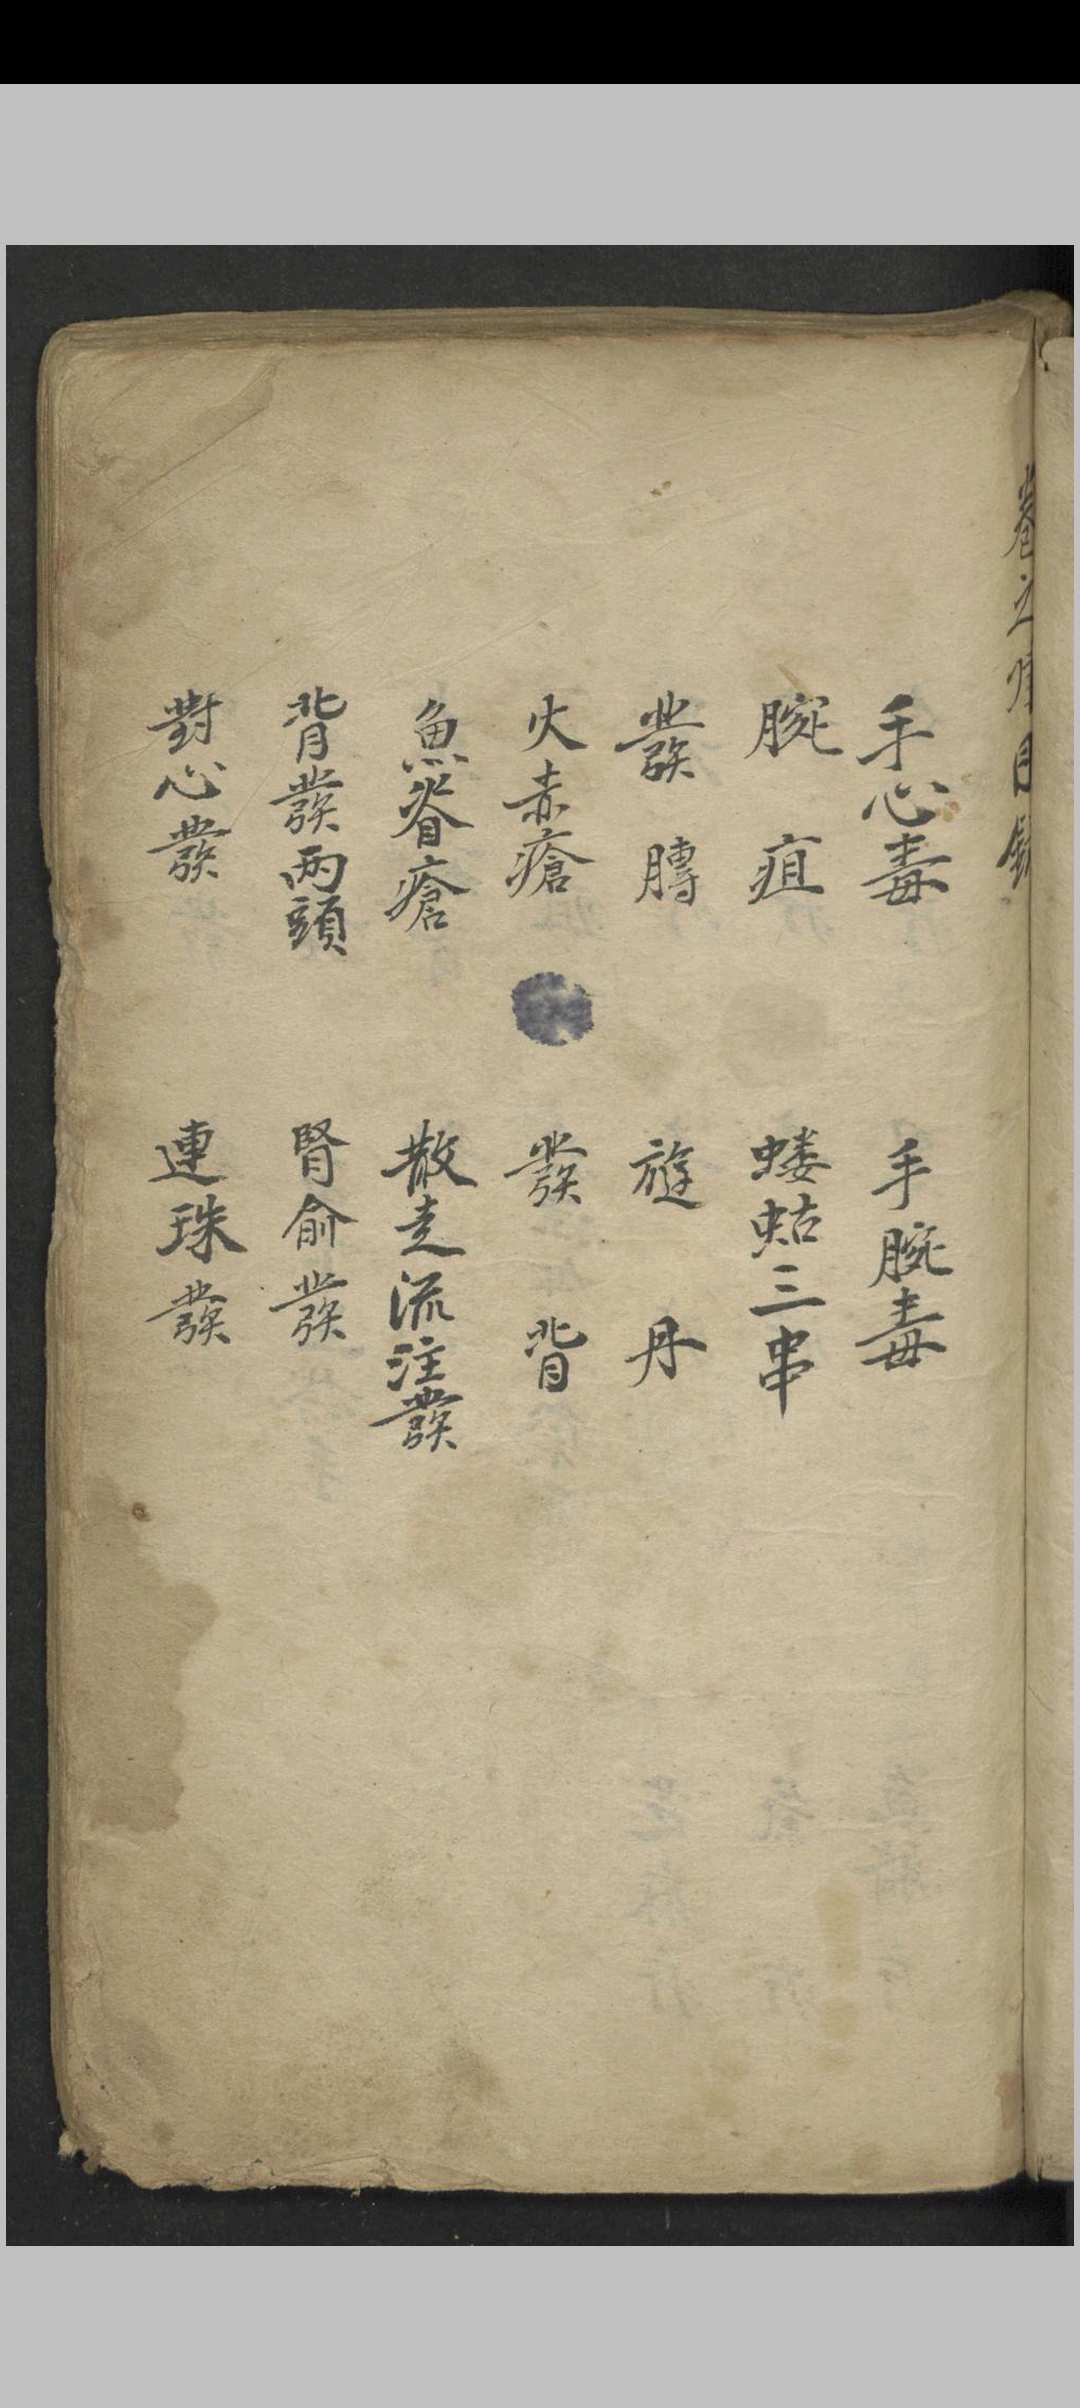 手心毒 手腕毒
腕疽 蝼蛄三串
發膊 遊丹
火赤瘡 發背
魚脊瘡 散走流注發
背發两頭 腎俞發
對心發 連珠發